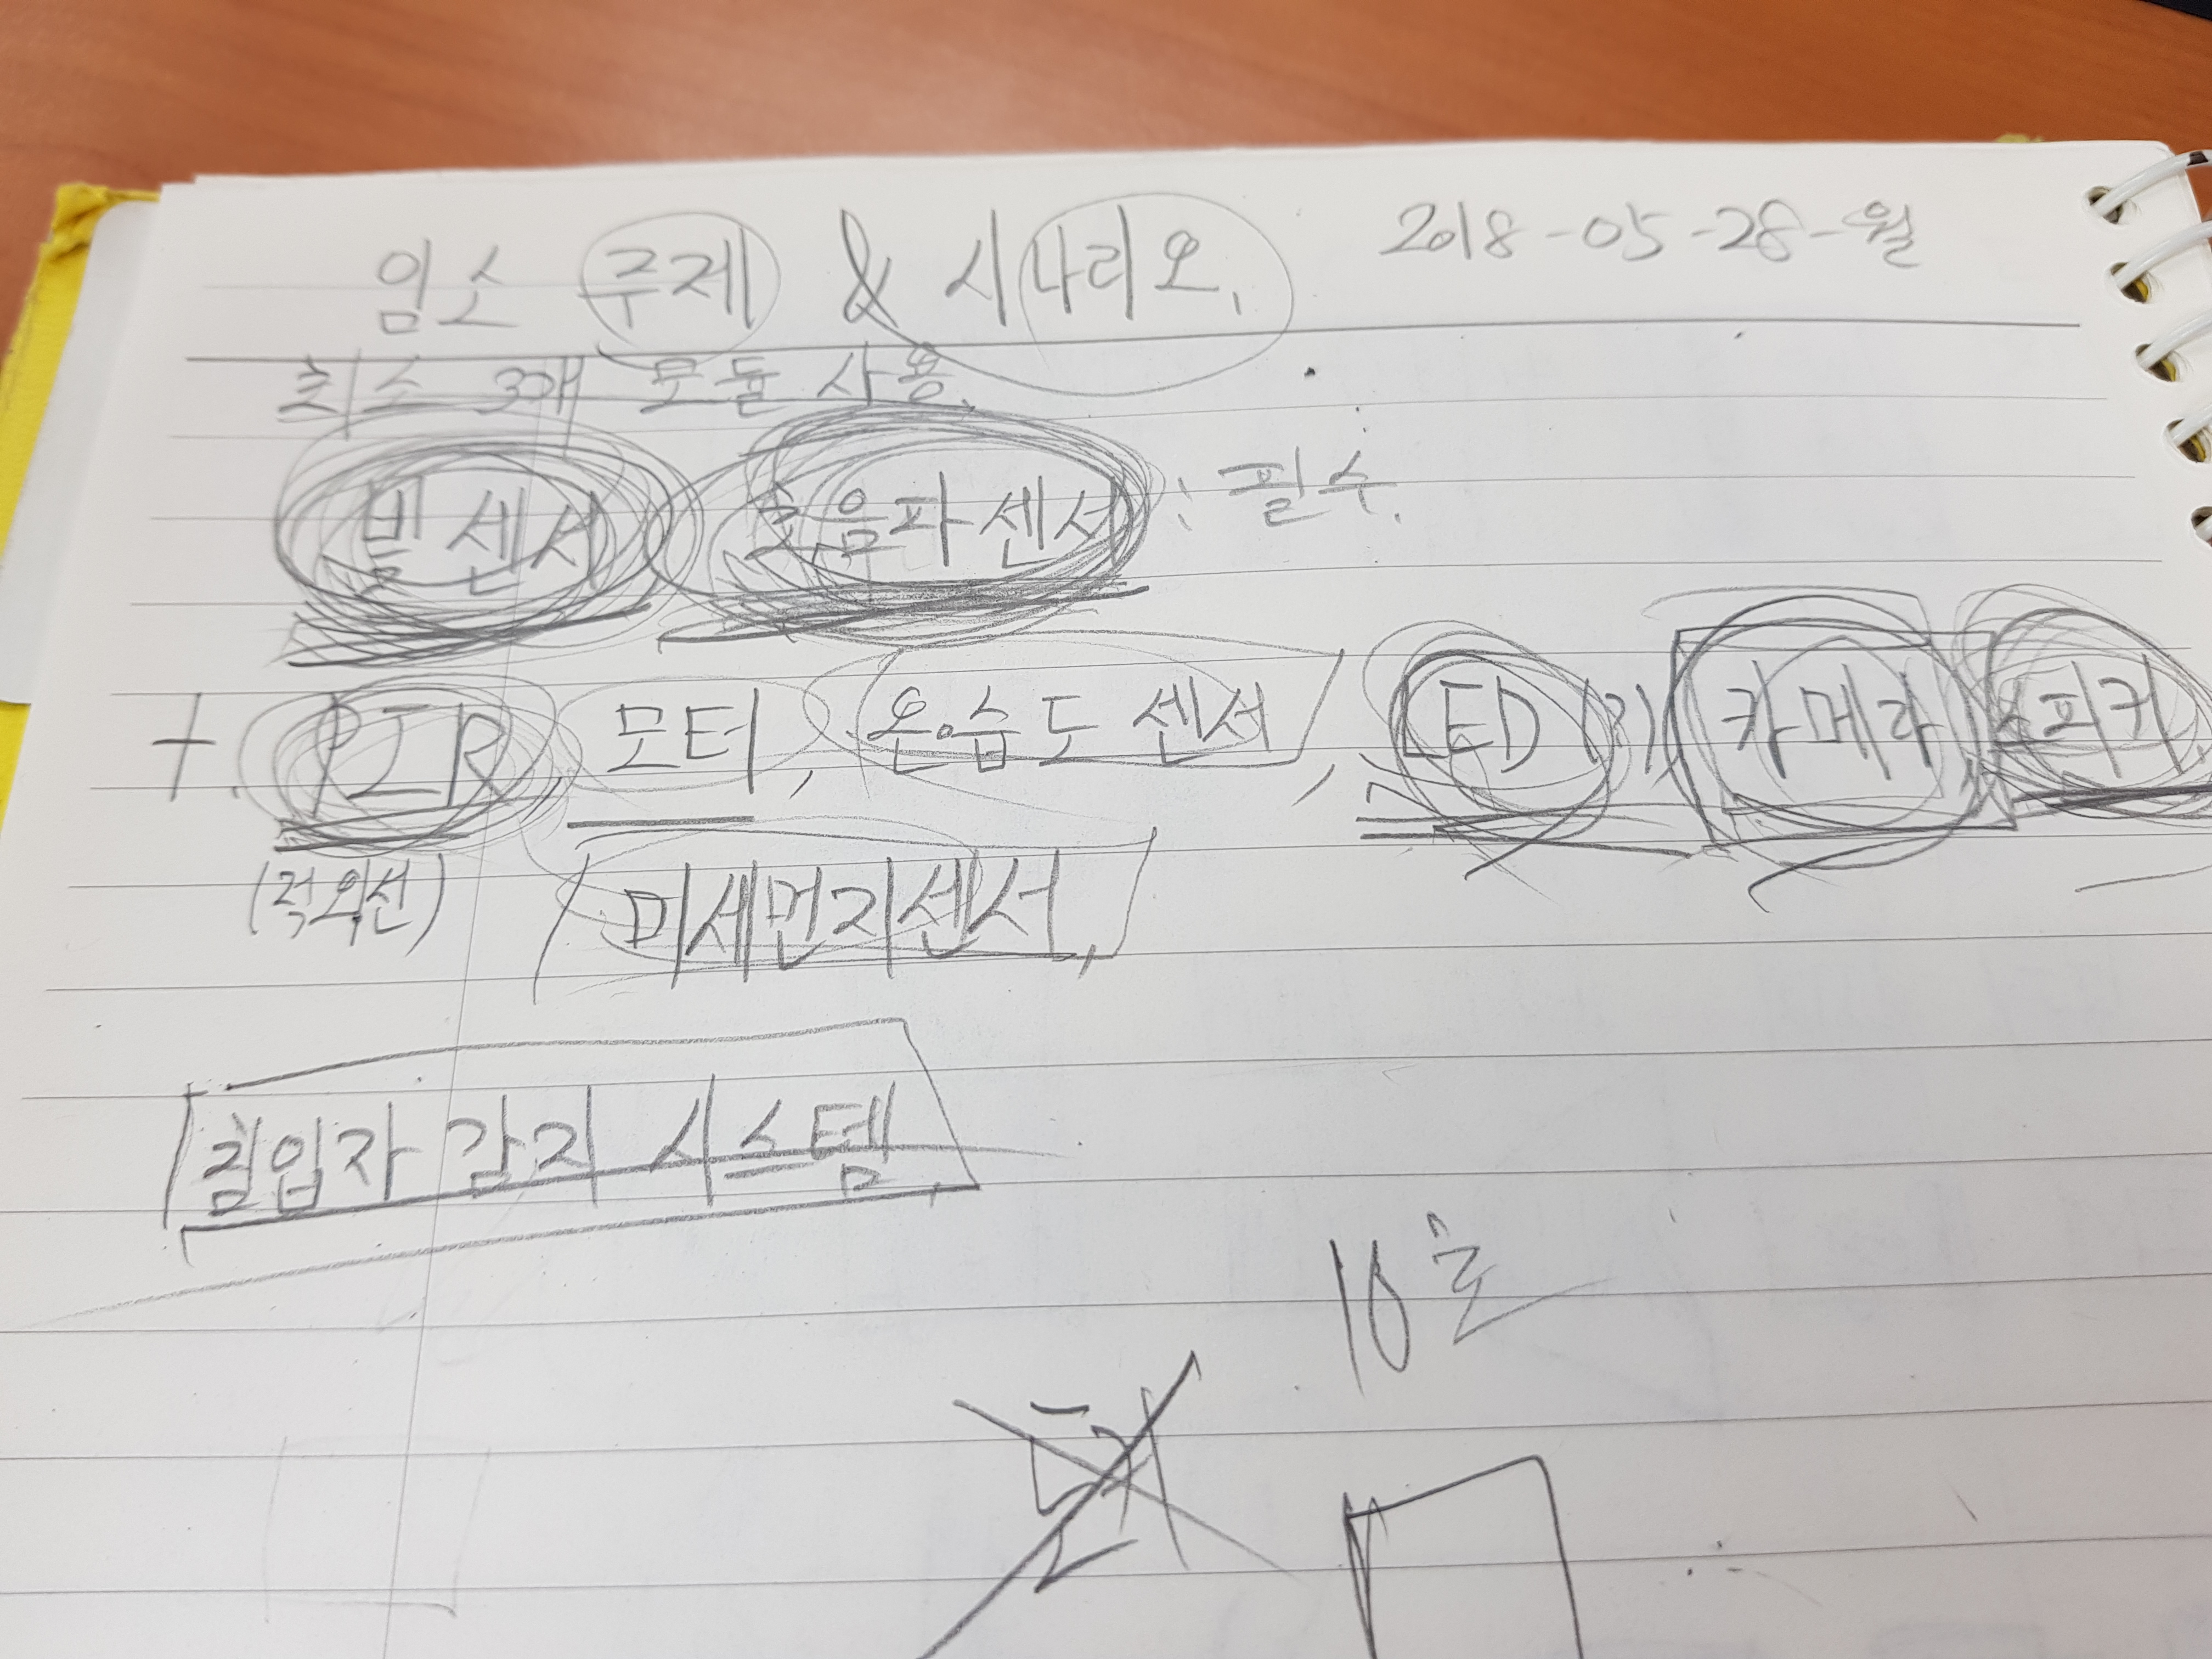 임소 주제 & 시나리오. 2018-05-28-월
최소 3개 모듈 사용.
빛 센서 초음파 센서 : 필수.
+. PIR, 모터, 온습도 센서, LED (?), 카메라, 스피커
(적외선) 미세먼지센서,
침입자 감지 시스템.